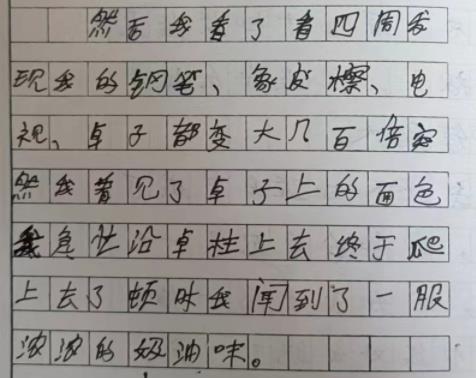 然后我看了看四周发
现我的钢笔、象皮檫、电
视、卓子都变大几百倍突
然我着见了卓子上的面色
我急忙沿卓柱上去终于爬
上去了顿时我闻到了一服
浓浓的奶油味。